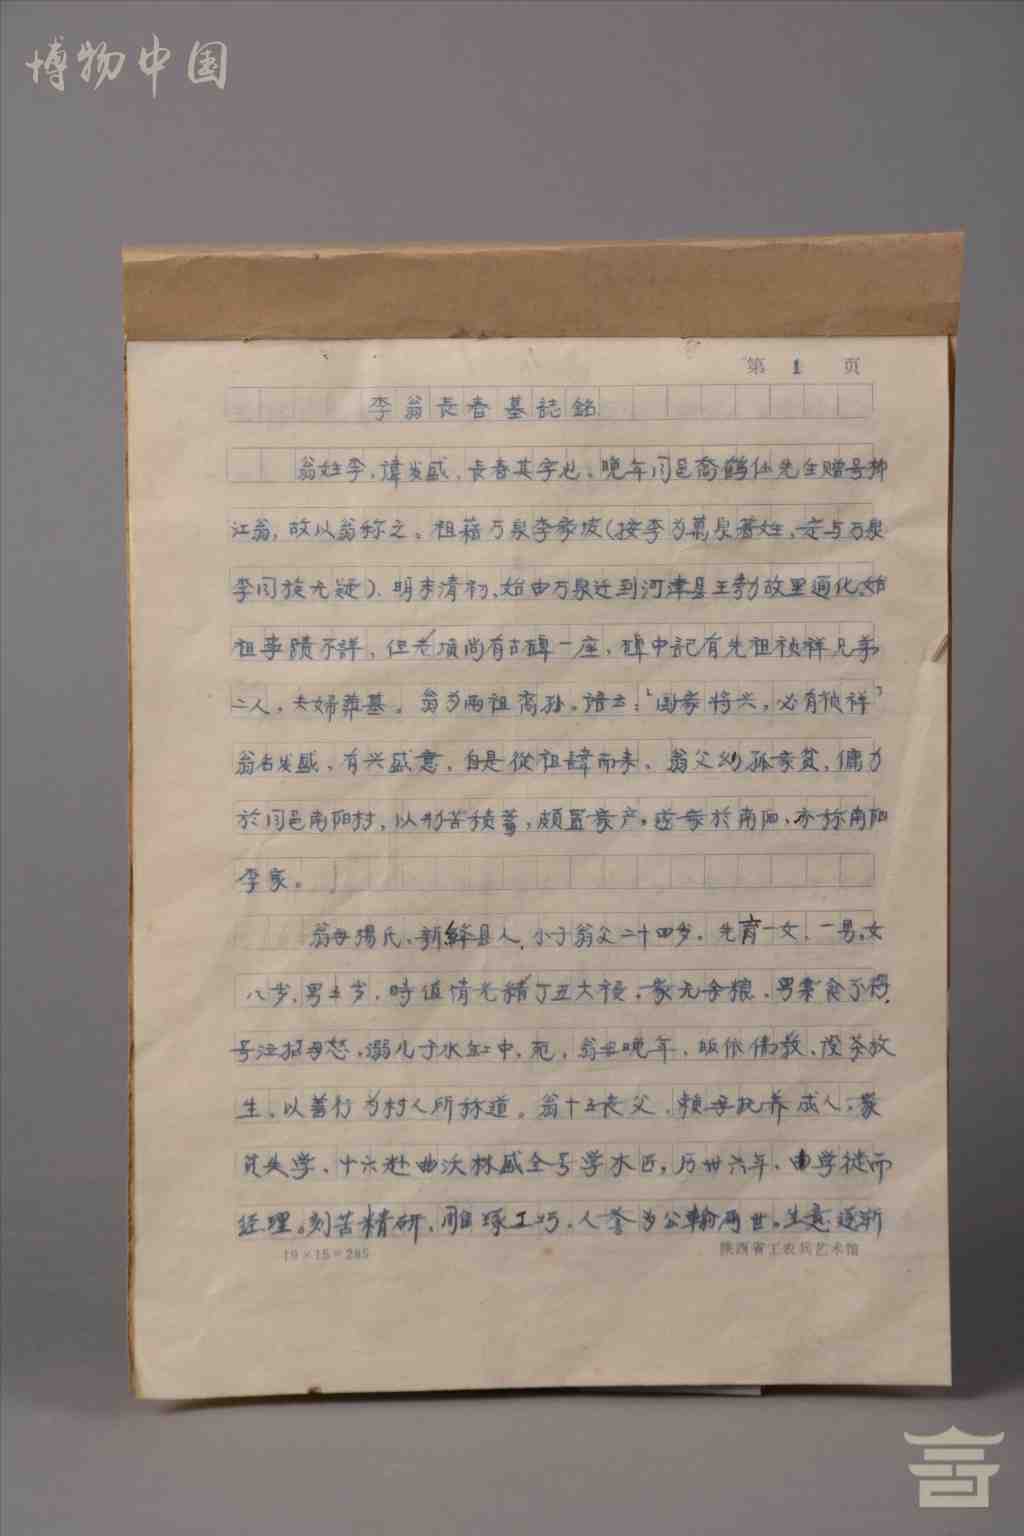 博物中国
第 1 页
李翁長春墓誌銘
翁姓李，諱发盛，長春其字也。晚年同邑喬鶴仙先生赠号柳
江翁，故以翁称之。祖藉万泉李家坡（按李为萬泉著姓，定与万泉
李同族尢疑）。明末清初，始由万泉迁到河津县王勃故里通化，始
祖事蹟不詳，但老墳尚有古碑一座，碑中記有先祖祯祥兄弟
二人，夫婦葬墓。翁为两祖裔孙。語云：“国家将兴，必有祯祥”
翁名发盛，有兴盛意，自是從祖諱而来。翁父幼孤家貧，傭力
於同邑南阳村，以勤苦積蓄，頗置家产。遂家於南阳，亦称南阳
李家。
翁母楊氏，新絳县人，小于翁父二十四岁。先育一女，一男，女
八岁，男五岁，時值情光緒丁丑大祲，家无余粮，男索食不得，
号泣招母怒，溺儿于水缸中，死。翁母晚年，皈依佛教，设茶放
生，以善行为村人所称道。翁十五丧父，賴母抚养成人，家
貧失学，十六赴曲沃林盛全号学木匠，历卅六年，由学徒而
经理。刻苦精研，雕琢工巧，人誉为公輸再世。生意逐渐
19×15=285
陕西省工农兵艺术馆